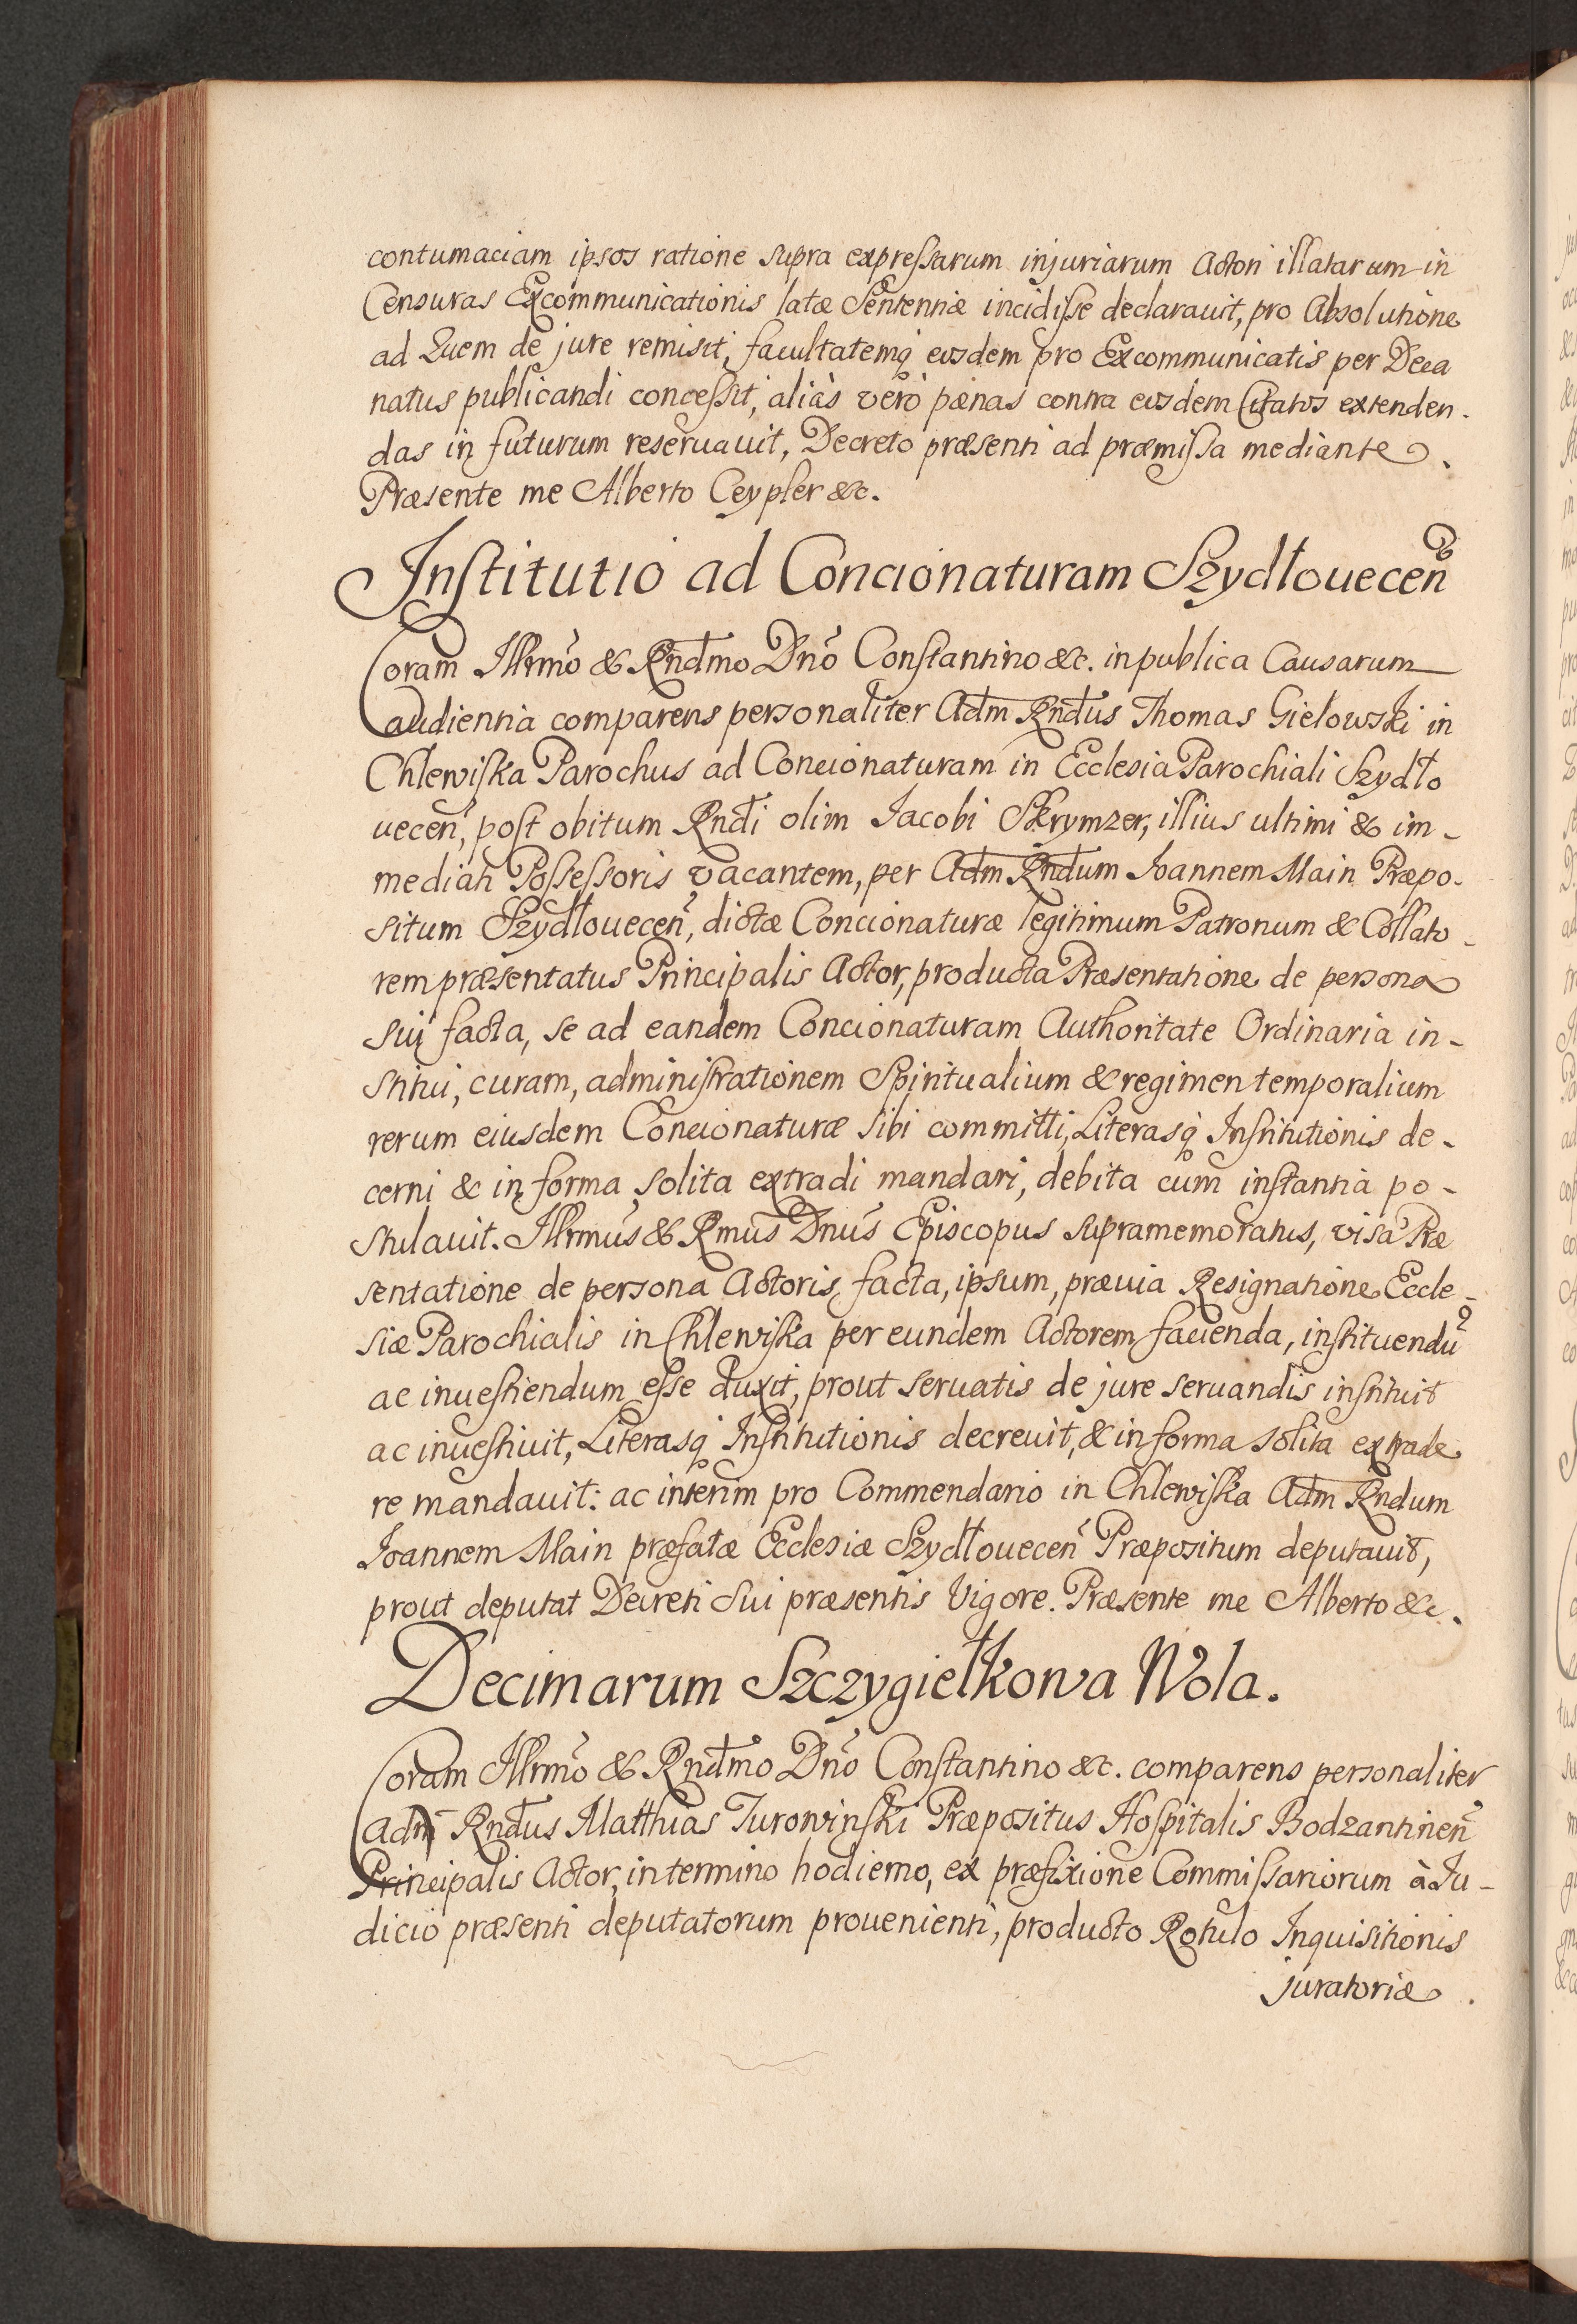 contumaciam ipsos ratione supra expressarum injuriarum Actori illatarum in
Censuras Excommunicationis latæ Sententiæ incidisse declarauit, pro Absolutione
ad Quem de jure remisit, facultatemq̃ eosdem pro Excommunicatis per Deca
natus publicandi concessit, aliàs verò pænas contra eosdem Citatos extenden-
das in futurum reseruauit, Decreto præsenti ad præmissa mediante.
Præsente me Alberto Ceypler &c.
Institutio ad Concionaturam Szydłouecen̄
Coram Illrmo & Rndmo Dno Constantino &c. in publica Causarum
audientia comparens personaliter Adm Rndus Thomas Giełowski in
Chlewiska Parochus ad Concionaturam in Ecclesia Parochiali Szydło
uecen̄, post obitum Rndi olim Jacobi Skrymzer, illius ultimi & im-
mediati Possessoris vacantem, per Adm Rndum Joannem Main Præpo-
situm Szydłouecen̄, dictæ Concionaturæ legitimum Patronum & Collato-
rem præsentatus Principalis Actor, producta Præsentatione de persona
sui facta, se ad eandem Concionaturam Authoritate Ordinaria in-
stitui, curam, administrationem Spiritualium & regimen temporalium
rerum eiusdem Concionaturæ sibi committi, Literasq̃ Institutionis de-
cerni & in forma solita extradi mandari, debita cum instantia po-
stulauit. Illrmus & Rmus Dnus Episcopus supramemoratus, visa Præ
sentatione de persona Actoris facta, ipsum, præuia Resignatione Eccle-
siæ Parochialis in Chlewiska per eundem Actorem facienda, instituendũ
ac inuestiendum esse duxit, prout seruatis de jure seruandis instituit
ac inuestiuit, Literasq̃ Institutionis decreuit, & in forma solita extrade
re mandauit: ac interim pro Commendario in Chlewiska Adm Rndum
Joannem Main præfatæ Ecclesiæ Szydłouecen̄ Præpositum deputauit,
prout deputat Decreti sui præsentis Vigore. Præsente me Alberto &c.
Decimarum Szczygiełkowa Wola.
Coram Illrmo & Rndmo Dno Constantino &c. comparens personaliter
Adm Rndus Matthias Turowinski Præpositus Hospitalis Bodzantinen̄
Principalis Actor, in termino hodierno, ex præfixione Commissariorum à Ju-
dicio præsenti deputatorum prouenienti, producto Rotulo Inquisitionis
juratoriæ.